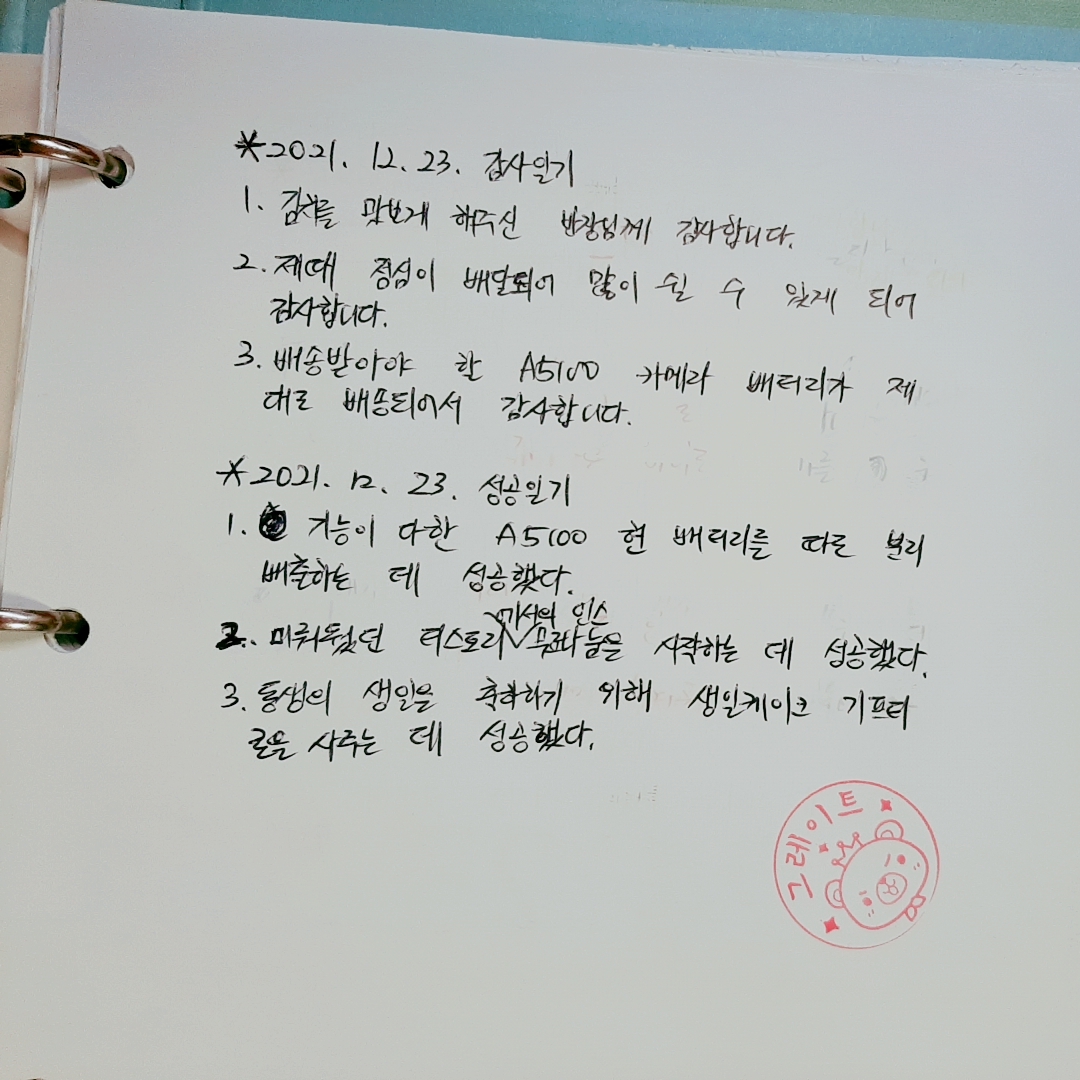 *2021. 12. 23. 감사일기
1. 김치를 맛보게 해주신 반장님께 감사합니다.
2. 제때 점심이 배달되어 많이 쉴 수 있게 되어
감사합니다.
3. 배송받아야 할 A5100 카메라 배터리가 제
대로 배송되어서 감사합니다.
*2021. 12. 23. 성공일기
1. 기능이 다한 A5100 현 배터리를 따로 분리
배출하는 데 성공했다.
인스
2. 미뤄뒀던 티스토리 무료나눔을 시작하는 데 성공했다.
3. 동생의 생일을 축하하기 위해 생일케이크 기프티
콘을 사주는 데 성공했다.
그레이트